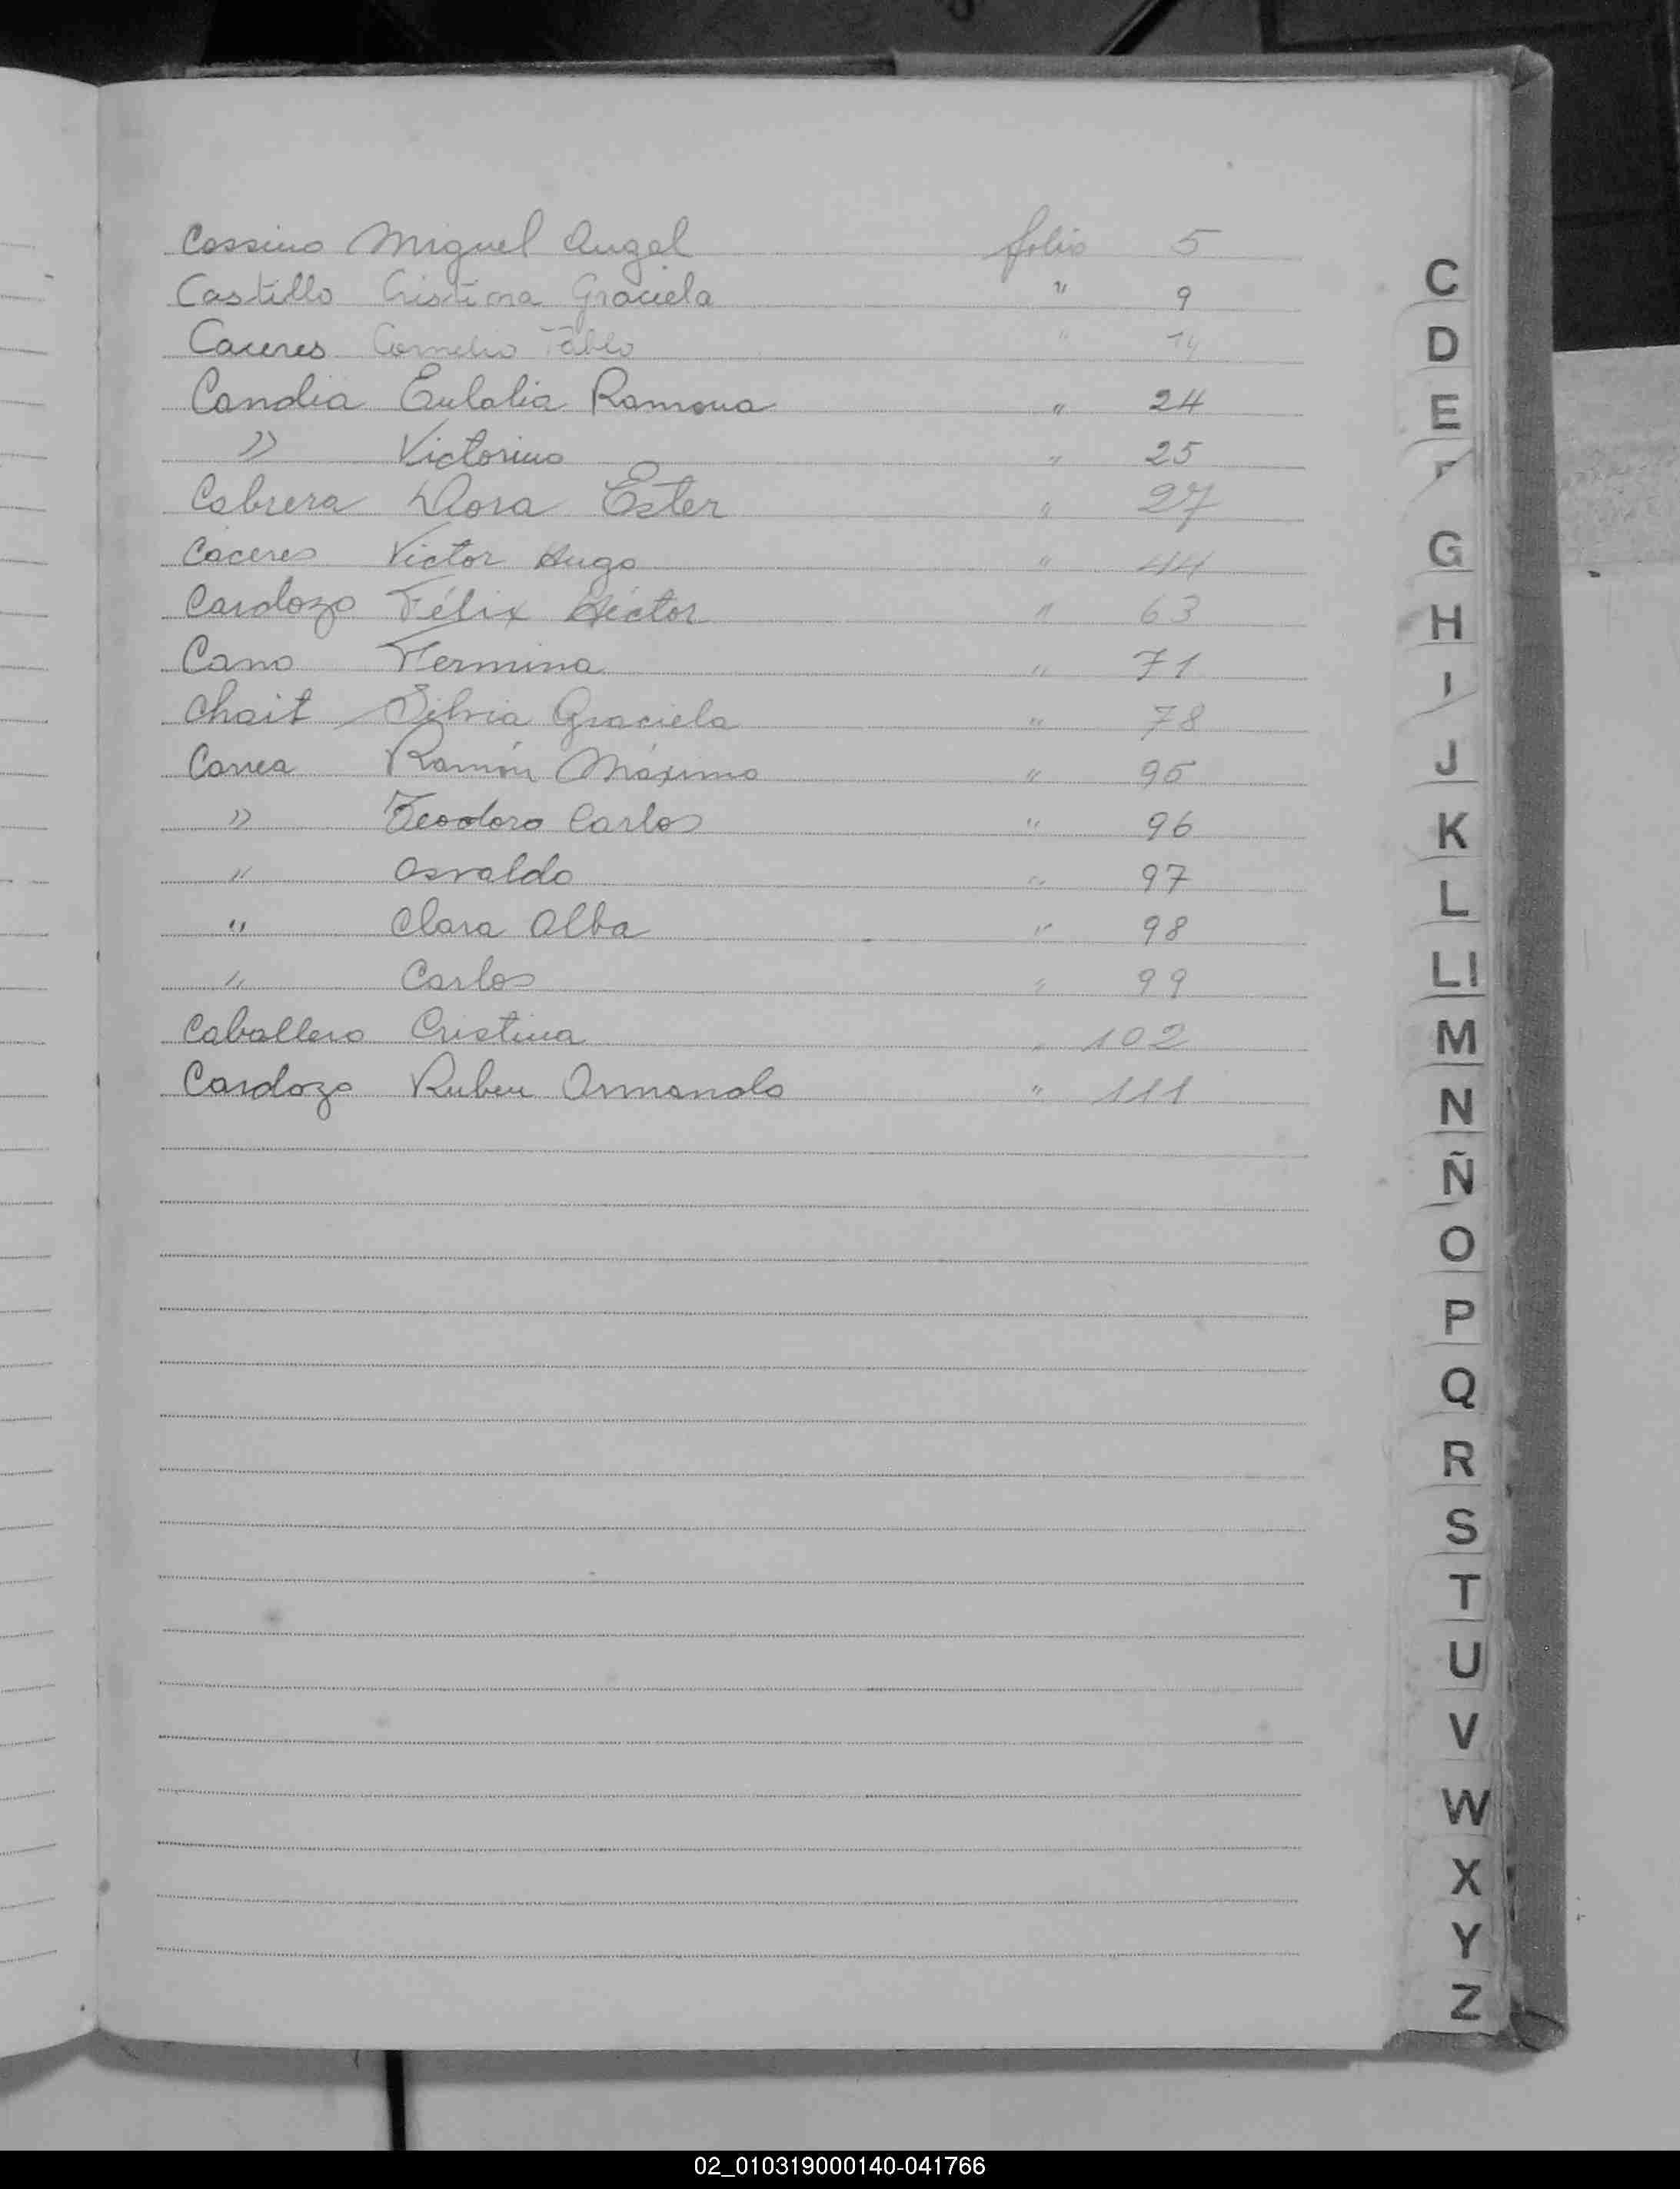 Cassino Miguel Angel folio 5
Castillo Cristina Graciela " 9
Caceres Cornelio Pablo " 14
Candia Eulalia Ramona " 24
" Victorino " 25
Cabrera Dora Ester " 27
Caceres Victor Hugo " 44
Cardozo Félix Héctor " 63
Cano Fermina " 71
Chait Silvia Graciela " 78
Correa Ramón Máximo " 95
" Teodoro Carlos " 96
" Osvaldo " 97
" Clara Alba " 98
" Carlos " 99
Caballero Cristina " 102
Cardozo Ruben Armando " 111
C
D
E
F
G
H
I
J
K
L
Ll
M
N
Ñ
O
P
Q
R
S
T
U
V
W
X
Y
Z
02_010319000140-041766